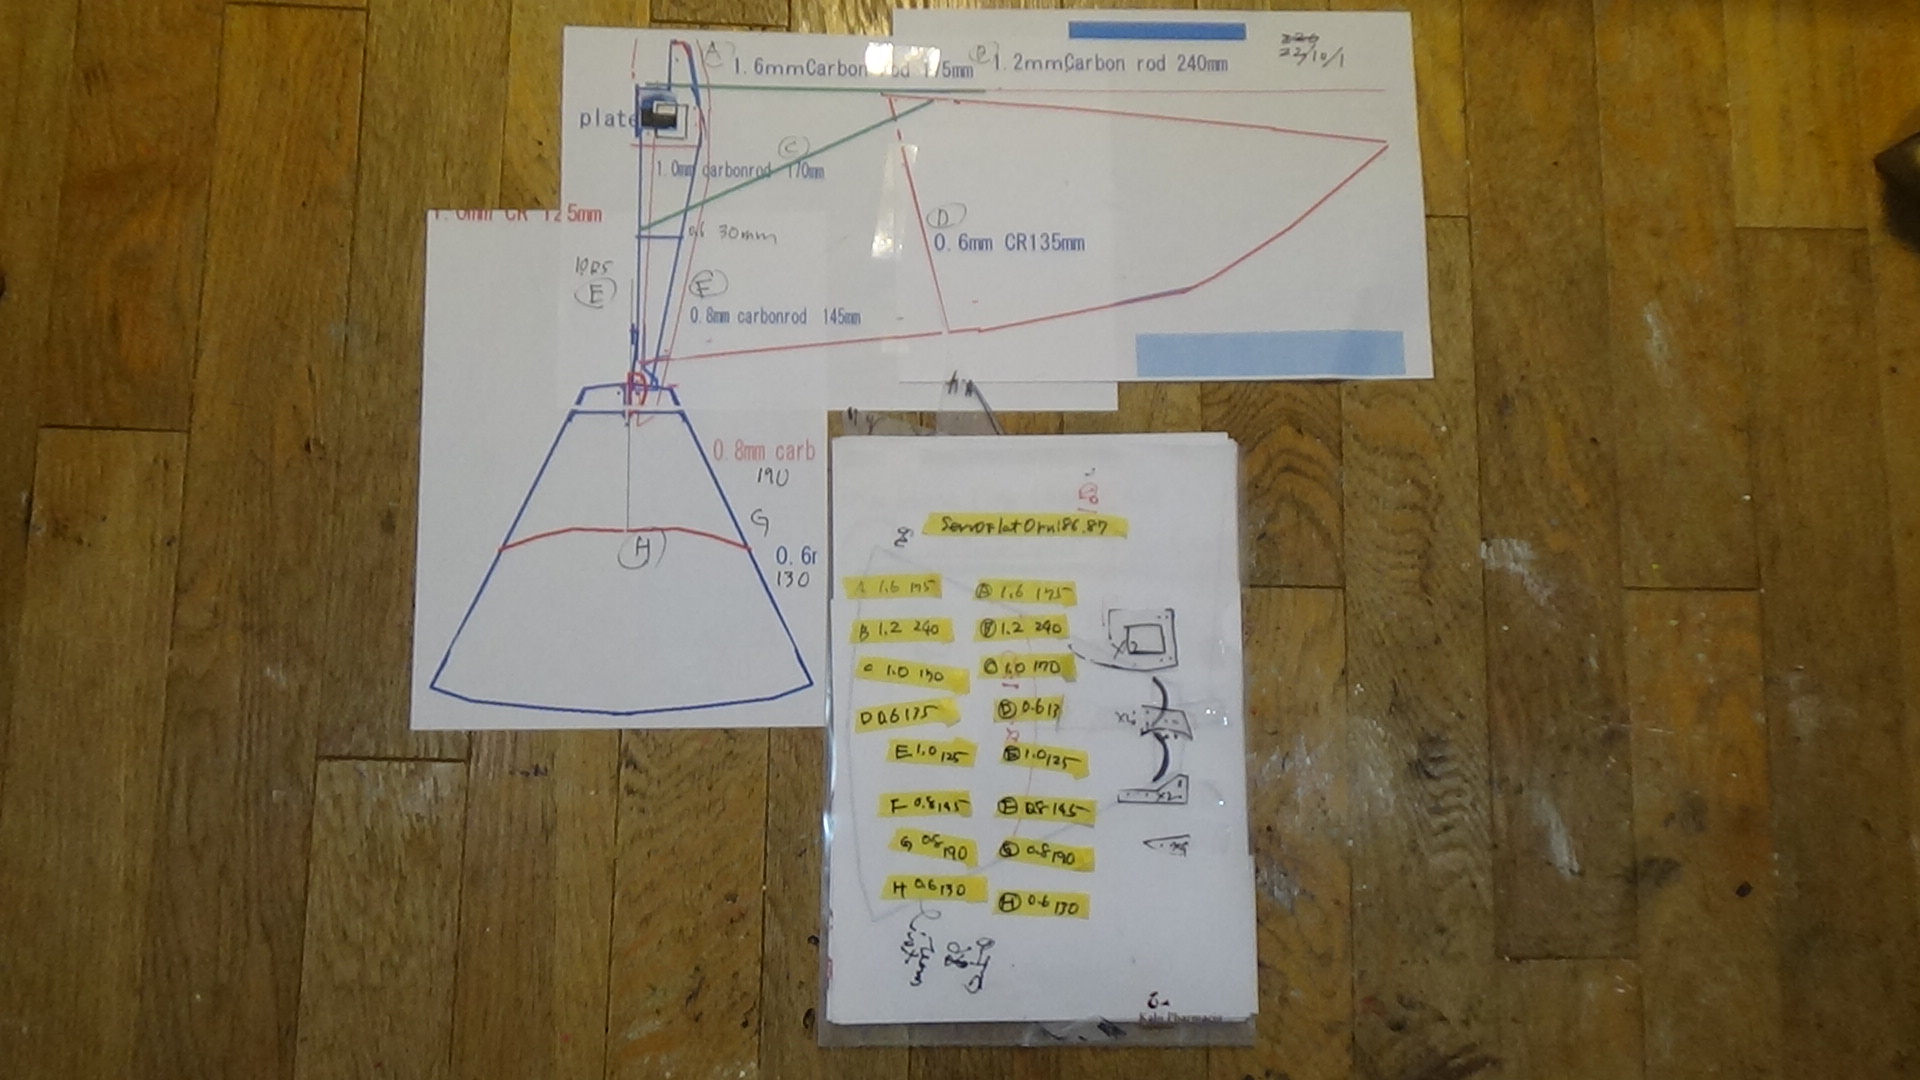 A 1.6mmCarbon rod 175mm
B 1.2mmCarbon rod 240mm
22/10/1
plate
C
1.0mm carbonrod 170mm
1.0mm CR 125mm
0.6 30mm
D
0.6mm CR135mm
E
F
0.8mm carbonrod 145mm
0.8mm carb
190
G
H
0.6
130
ServoFlatOrn186.87
A 1.6 175
A 1.6 175
B 1.2 240
B 1.2 240
C 1.0 170
C 1.0 170
D 0.6 135
D 0.613
E 1.0 125
E 1.0 125
F 0.8 145
F 0.8 145
G 0.8 190
G 0.8 190
H 0.6 130
H 0.6 130
x2
x2